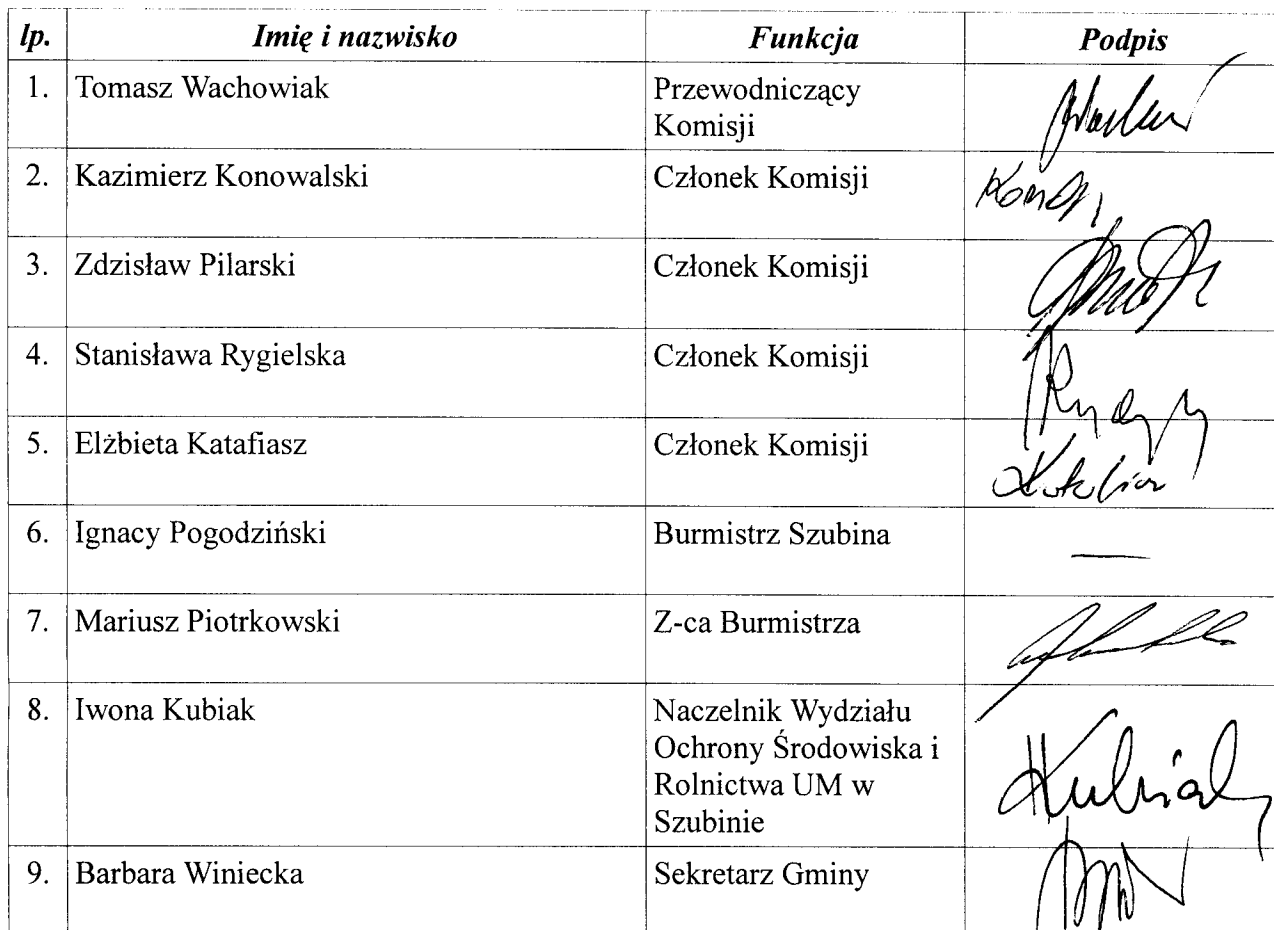 lp. Imię i nazwisko Funkcja Podpis
1. Tomasz Wachowiak Przewodniczący
Komisji
2. Kazimierz Konowalski Członek Komisji
3. Zdzisław Pilarski Członek Komisji
4. Stanisława Rygielska Członek Komisji
5. Elżbieta Katafiasz Członek Komisji
6. Ignacy Pogodziński Burmistrz Szubina —
7. Mariusz Piotrkowski Z-ca Burmistrza
8. Iwona Kubiak Naczelnik Wydziału
Ochrony Środowiska i
Rolnictwa UM w
Szubinie
Kubiak
9. Barbara Winiecka Sekretarz Gminy